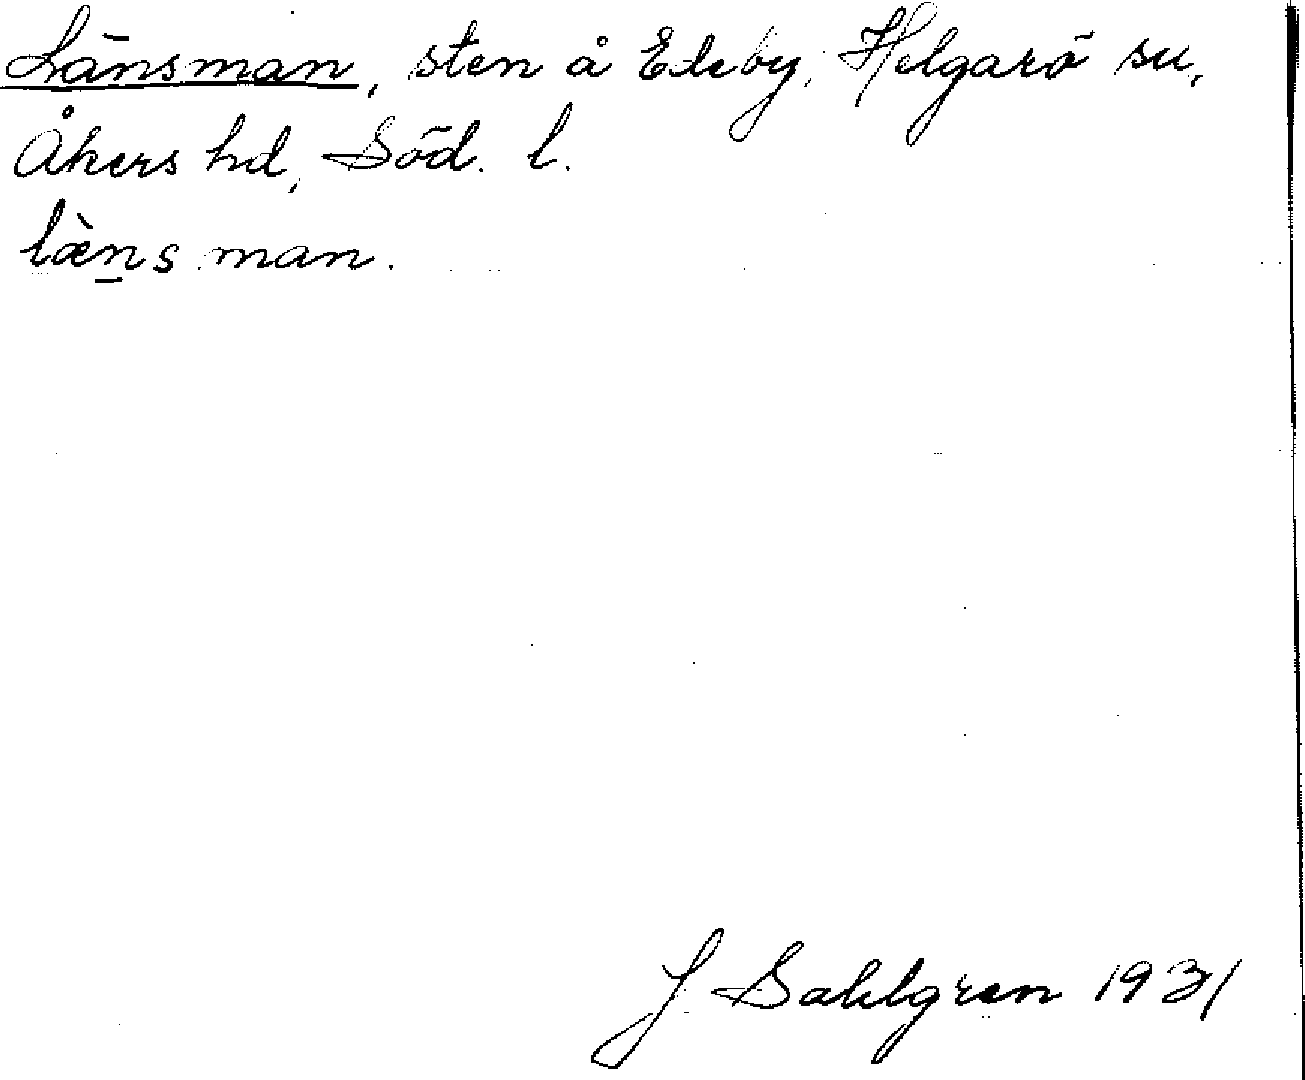 Länsman, sten å Edeby, Helgarö sn,
Åkers hd, Söd. l.
lèns man.
J. Sahlgren 1931